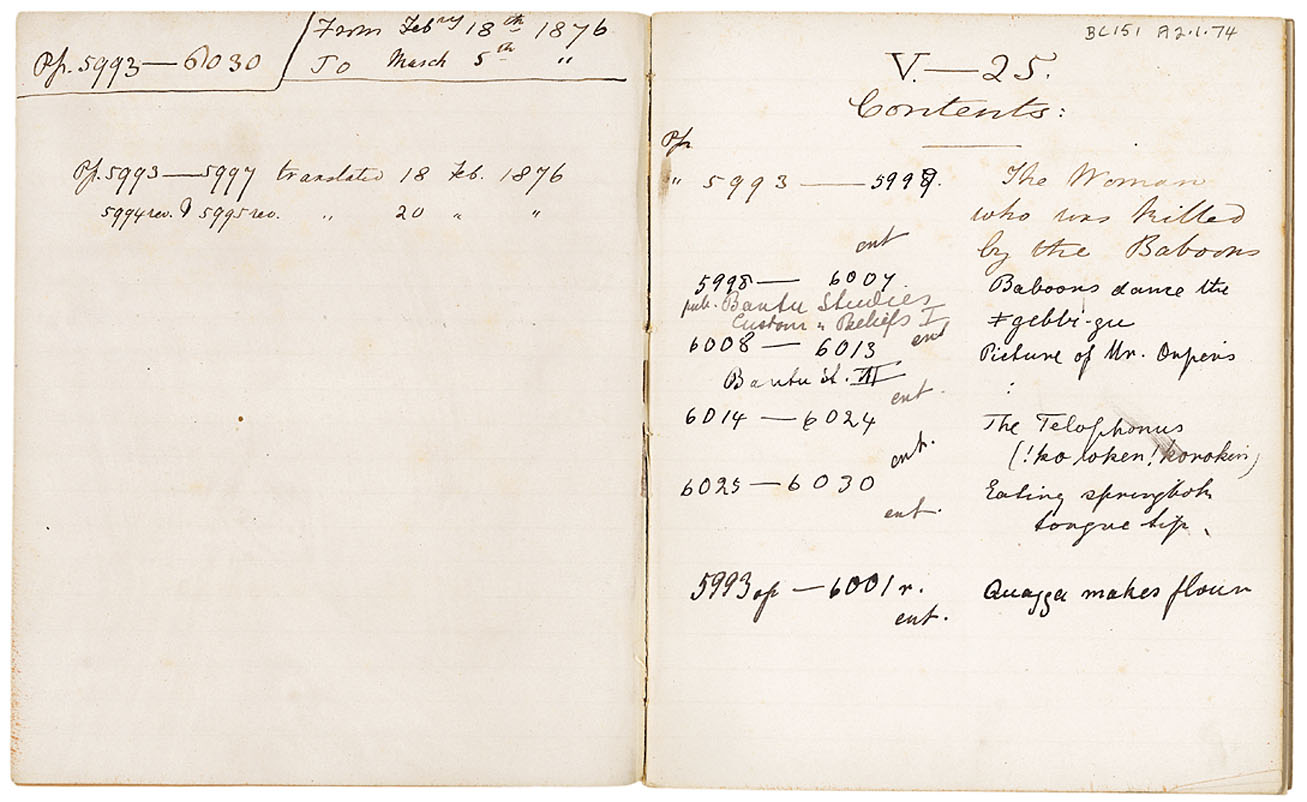 Pp. 5993 — 6030
From Febry 18th 1876
To March 5th "
Pp. 5993 — 5997 translated 18 Feb. 1876
5994 rev. & 5995 rev. " 20 " "
BC151 A2.1.74
V. — 25.
Contents:
Pp
" 5993 — 5998. The Woman
who was killed
by the Baboons
ent
5998 — 6007. Baboons dance the
pub. Bantu Studies
ǂgebbi-gu
Custom " Beliefs I
ent
6008 — 6013 Picture of Mr. Orpen's
Bantu St. III
ent.
6014 — 6024 The Telophonus
(!ko !oken !
ent.
6025 — 6030 Eating springbok
tongue tip.
ent.
5993 op — 6001 r. Quagga makes flour
ent.